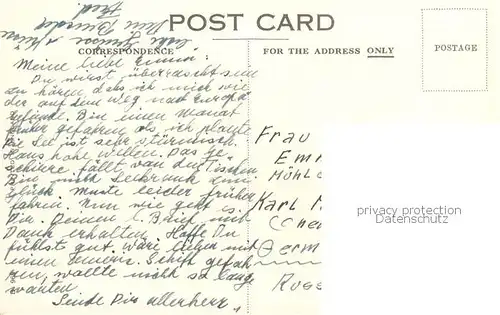 POST CARD
CORRESPONDENCE
FOR THE ADDRESS ONLY
POSTAGE
Meine liebe Emmi:
Du wirst überrascht sein
zu hören, dass ich mich wie
der auf dem Weg nach Europa
befinde. Bin einen Monat
früher gefahren als ich plante
Die See ist sehr stürmisch.
Haus hohe Wellen. Das Ge
schirr fällt von den Tischen.
Bin nicht Seekrank zum
Glück. Muste leider früher
fahren. Nun wie geht es
Dir. Deinen l. Brief mit
Dank erhalten. Hoffe Du
fühlst gut. Wäre lieber mit
einem Schiff gefah
ren, wollte nicht so lange
warten
Sende Dir aller
liebe Grüsse
Dein Bruder
Frau
Em
Mühl
Karl M
(Che
Germ
Russ
privacy protection
Datenschutz